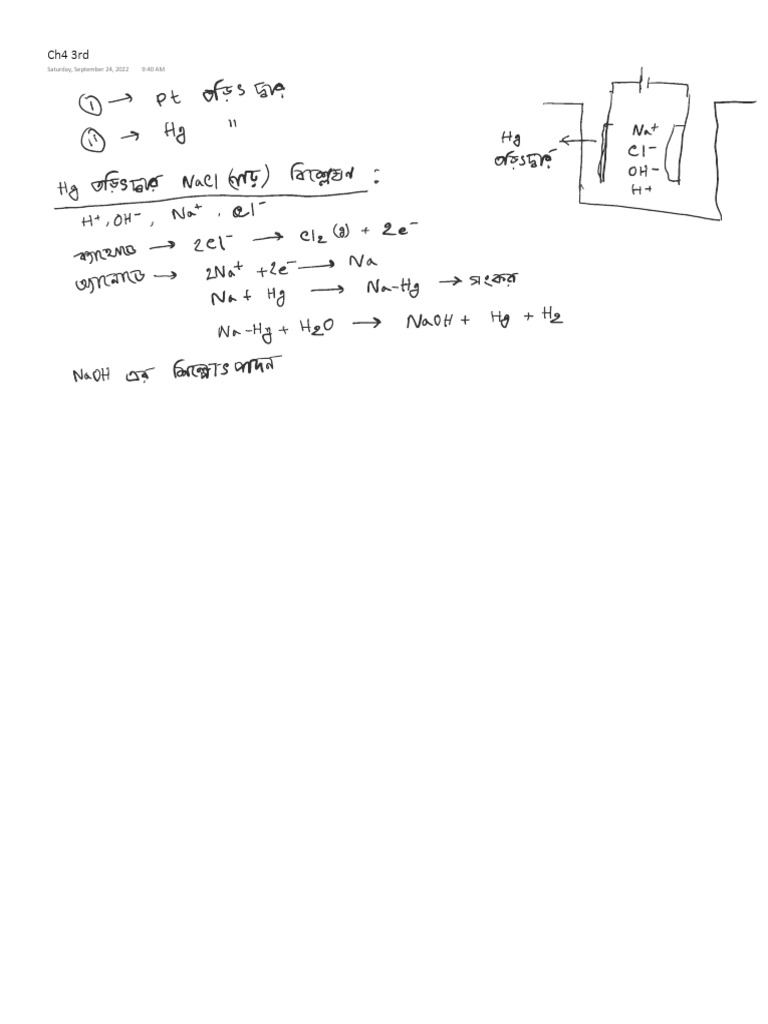 Ch4 3rd
Saturday, September 24, 2022 9:40 AM
(i) → Pt তড়িৎ দ্বার
(ii) → Hg "
Hg তড়িৎদ্বার NaCl (গাঢ়) বিশ্লেষন :
H⁺, OH⁻, Na⁺, Cl⁻
ক্যাথোডে → 2Cl⁻ → Cl₂ (g) + 2e⁻
অ্যানোডে → 2Na⁺ + 2e⁻ → Na
Na + Hg → Na-Hg → সংকর
Na-Hg + H₂O → NaOH + Hg + H₂
NaOH এর শিল্পোৎপাদন
Hg
তড়িৎদ্বার
Na⁺
Cl⁻
OH⁻
H⁺